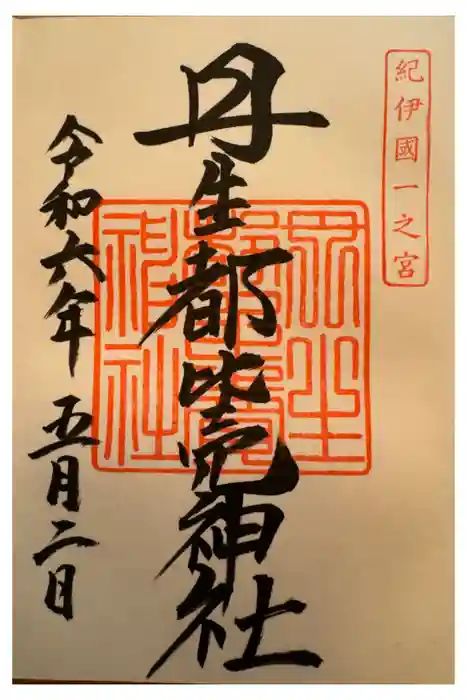 紀伊國一之宮
丹生都比売神社
丹生都比賣神社
令和六年 五月二日